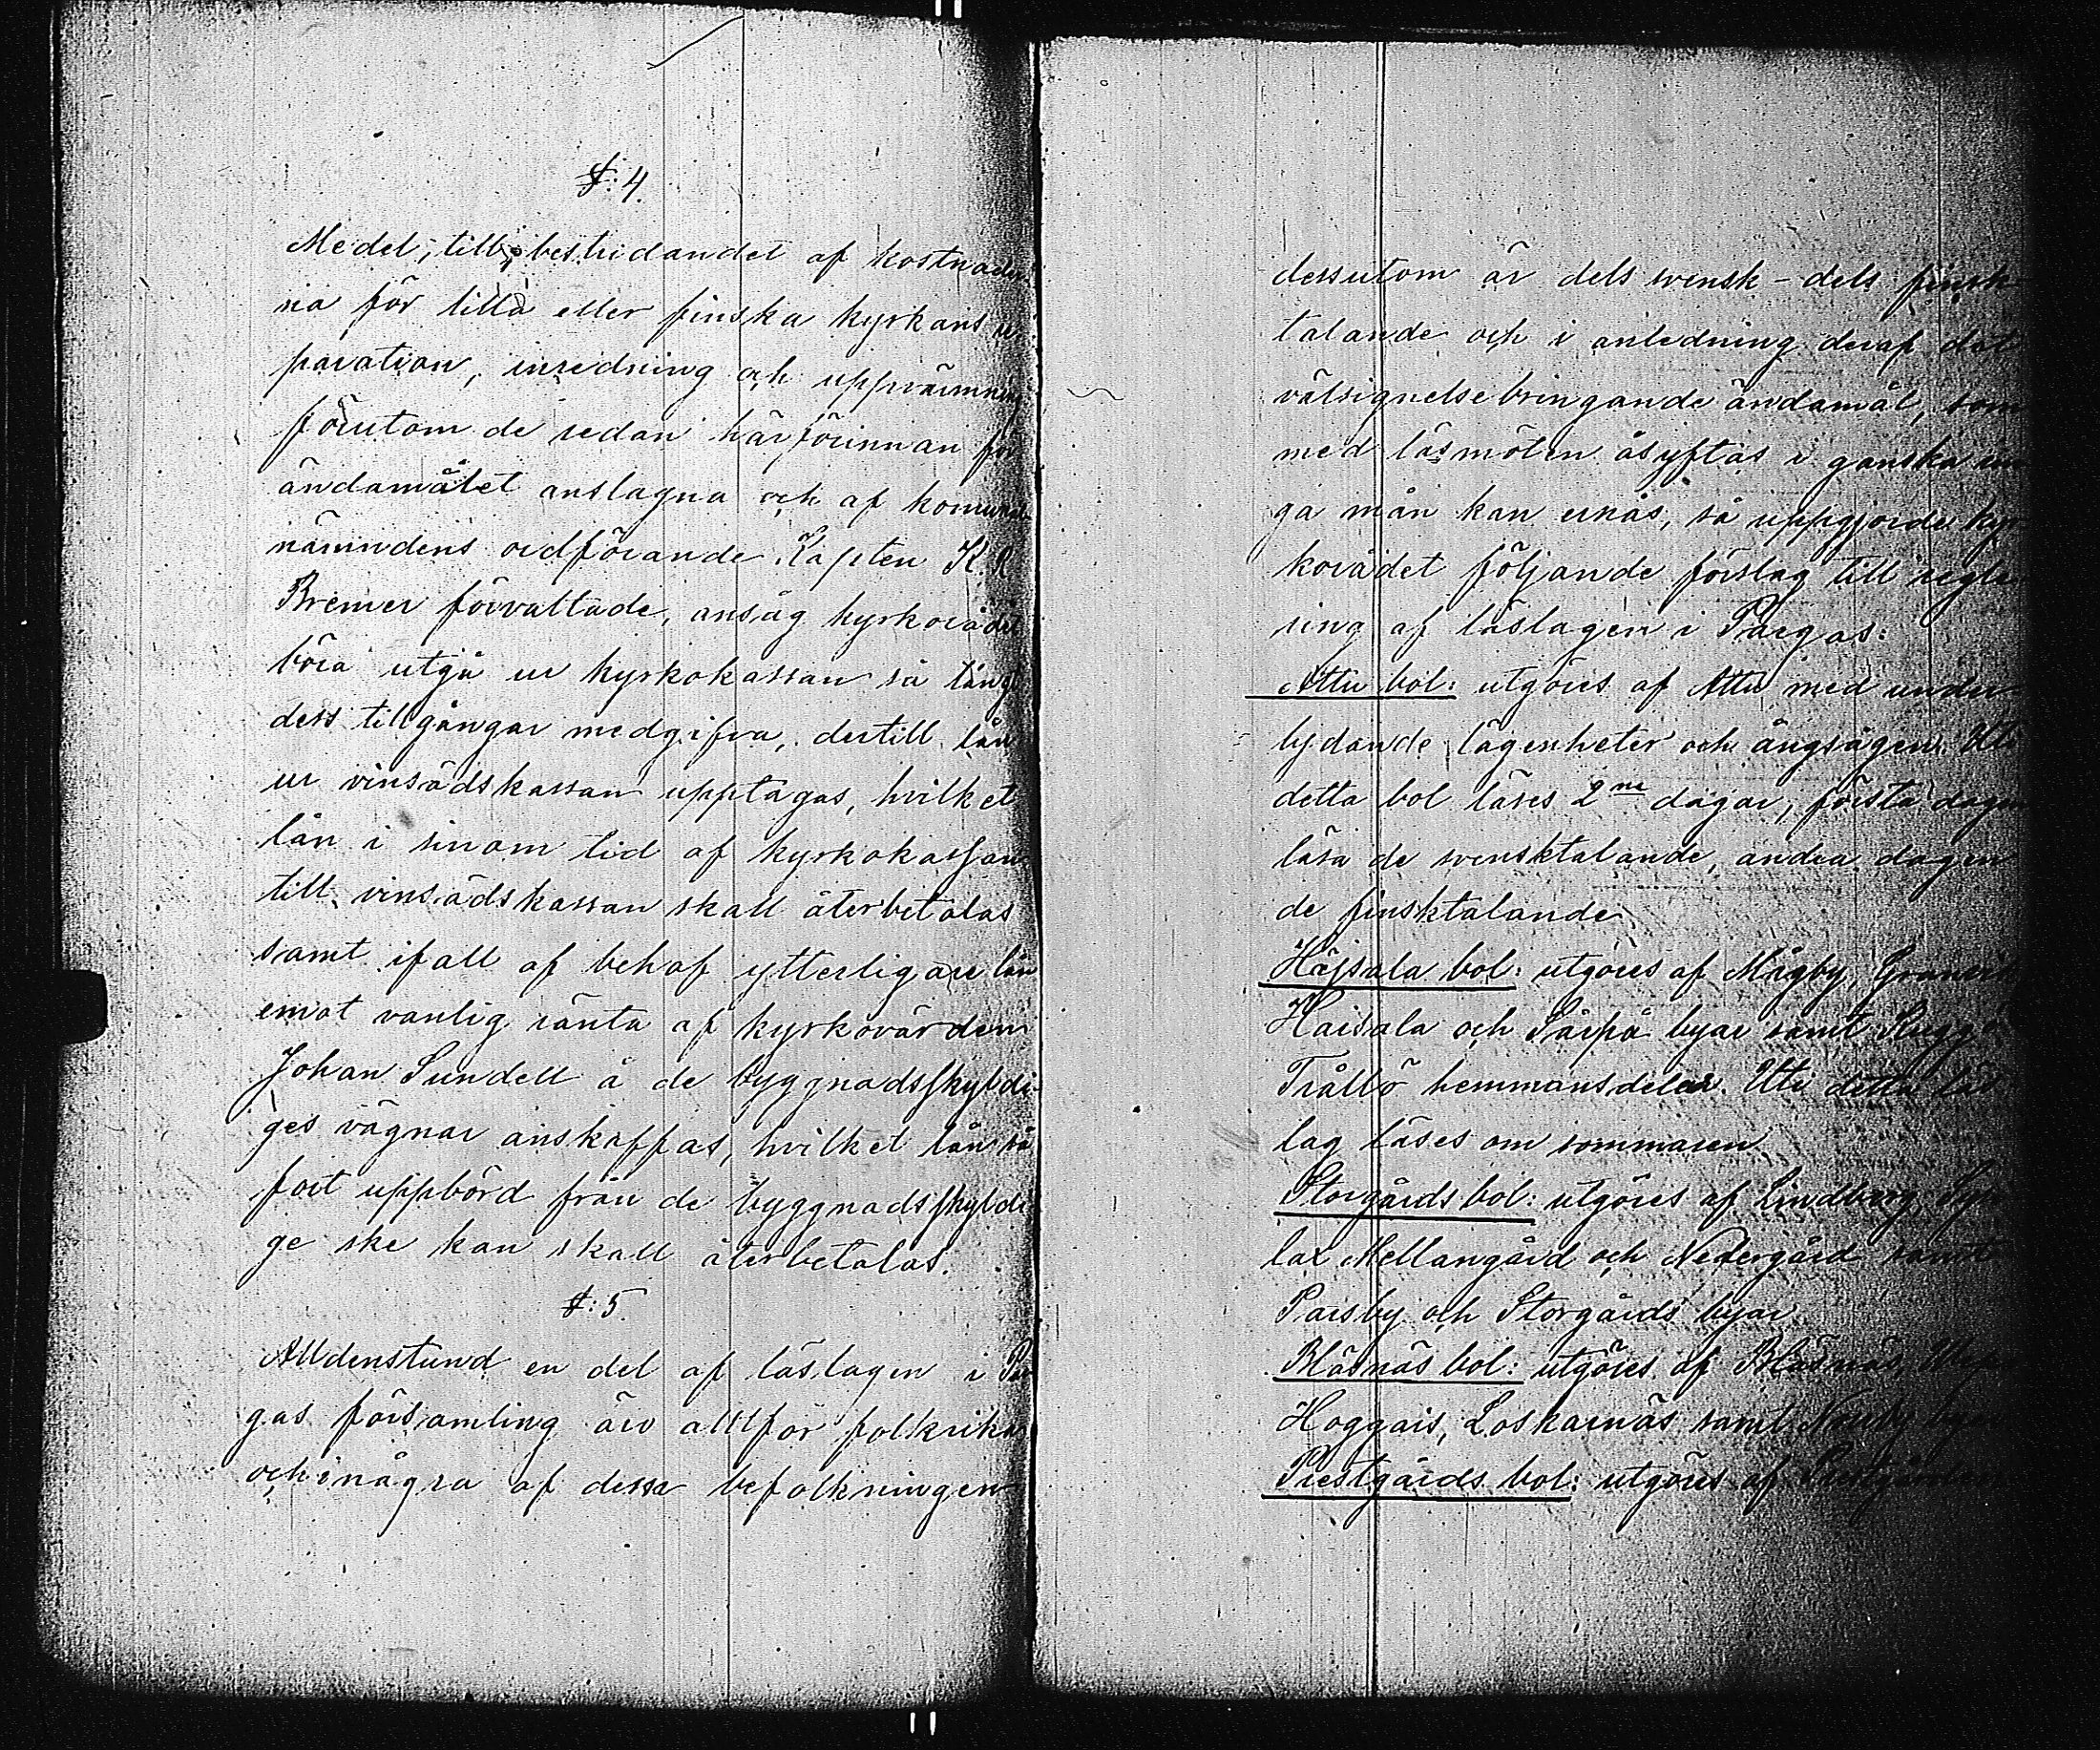 §: 4.
Medel, till bestridandet af kostnader
na för lilla eller finska kyrkans re
paration, inredning och uppvärmning
förutom de redan härförinnan för
ändamålet anslagna och af kommunal
nämndens ordförande Kapten K. R.
Bremer förvaltade, ansåg kyrkorådet
böra utgå ur kyrkokassan så långt
dess tillgångar medgifva, dertill lån
ur vinsädskassan upptagas, hvilket
lån i sinom tid af kyrkokassan
till vinsädskassan skall återbetalas
samt ifall af behof ytterligare lån
emot vanlig ränta af kyrkovärden
Johan Sundell å de byggnadsskyldi
ges vägnar anskaffas, hvilket lån så
fort uppbörd från de byggnadsskyldi
ge ske kan skall återbetalas.
§: 5.
Alldenstund en del af läslagen i Par
gas församling äro alltför folkrika
och i några af dessa befolkningen
dessutom är dels svensk- dels finsk
talande och i anledning deraf det
välsignelsebringande ändamål, som
med läsmöten åsyftas i ganska rin
ga mån kan ernås, så uppgjorde kyr
korådet följande förslag till regle
ring af läslagen i Pargas:
Attu bol: utgöres af Attu med under
lydande lägenheter och ängsägen. Uti
detta bol läses 2ne dagar, första dagen
läsa de svensktalande, andra dagen
de finsktalande
Hajsala bol: utgöres af Mågby,
Haisala och Särpå byar samt
Trållö hemmansdelar. Uti detta läs
lag läses om sommaren
Storgårds bol: utgöres af Lindberg,
lax Mellangård och Nedergård samt
Parsby och Storgårds byar
Bläsnäs bol: utgöres af Bläsnäs,
Hoggais, Loskarnäs samt Norrby
Prestgårds bol: utgöres af